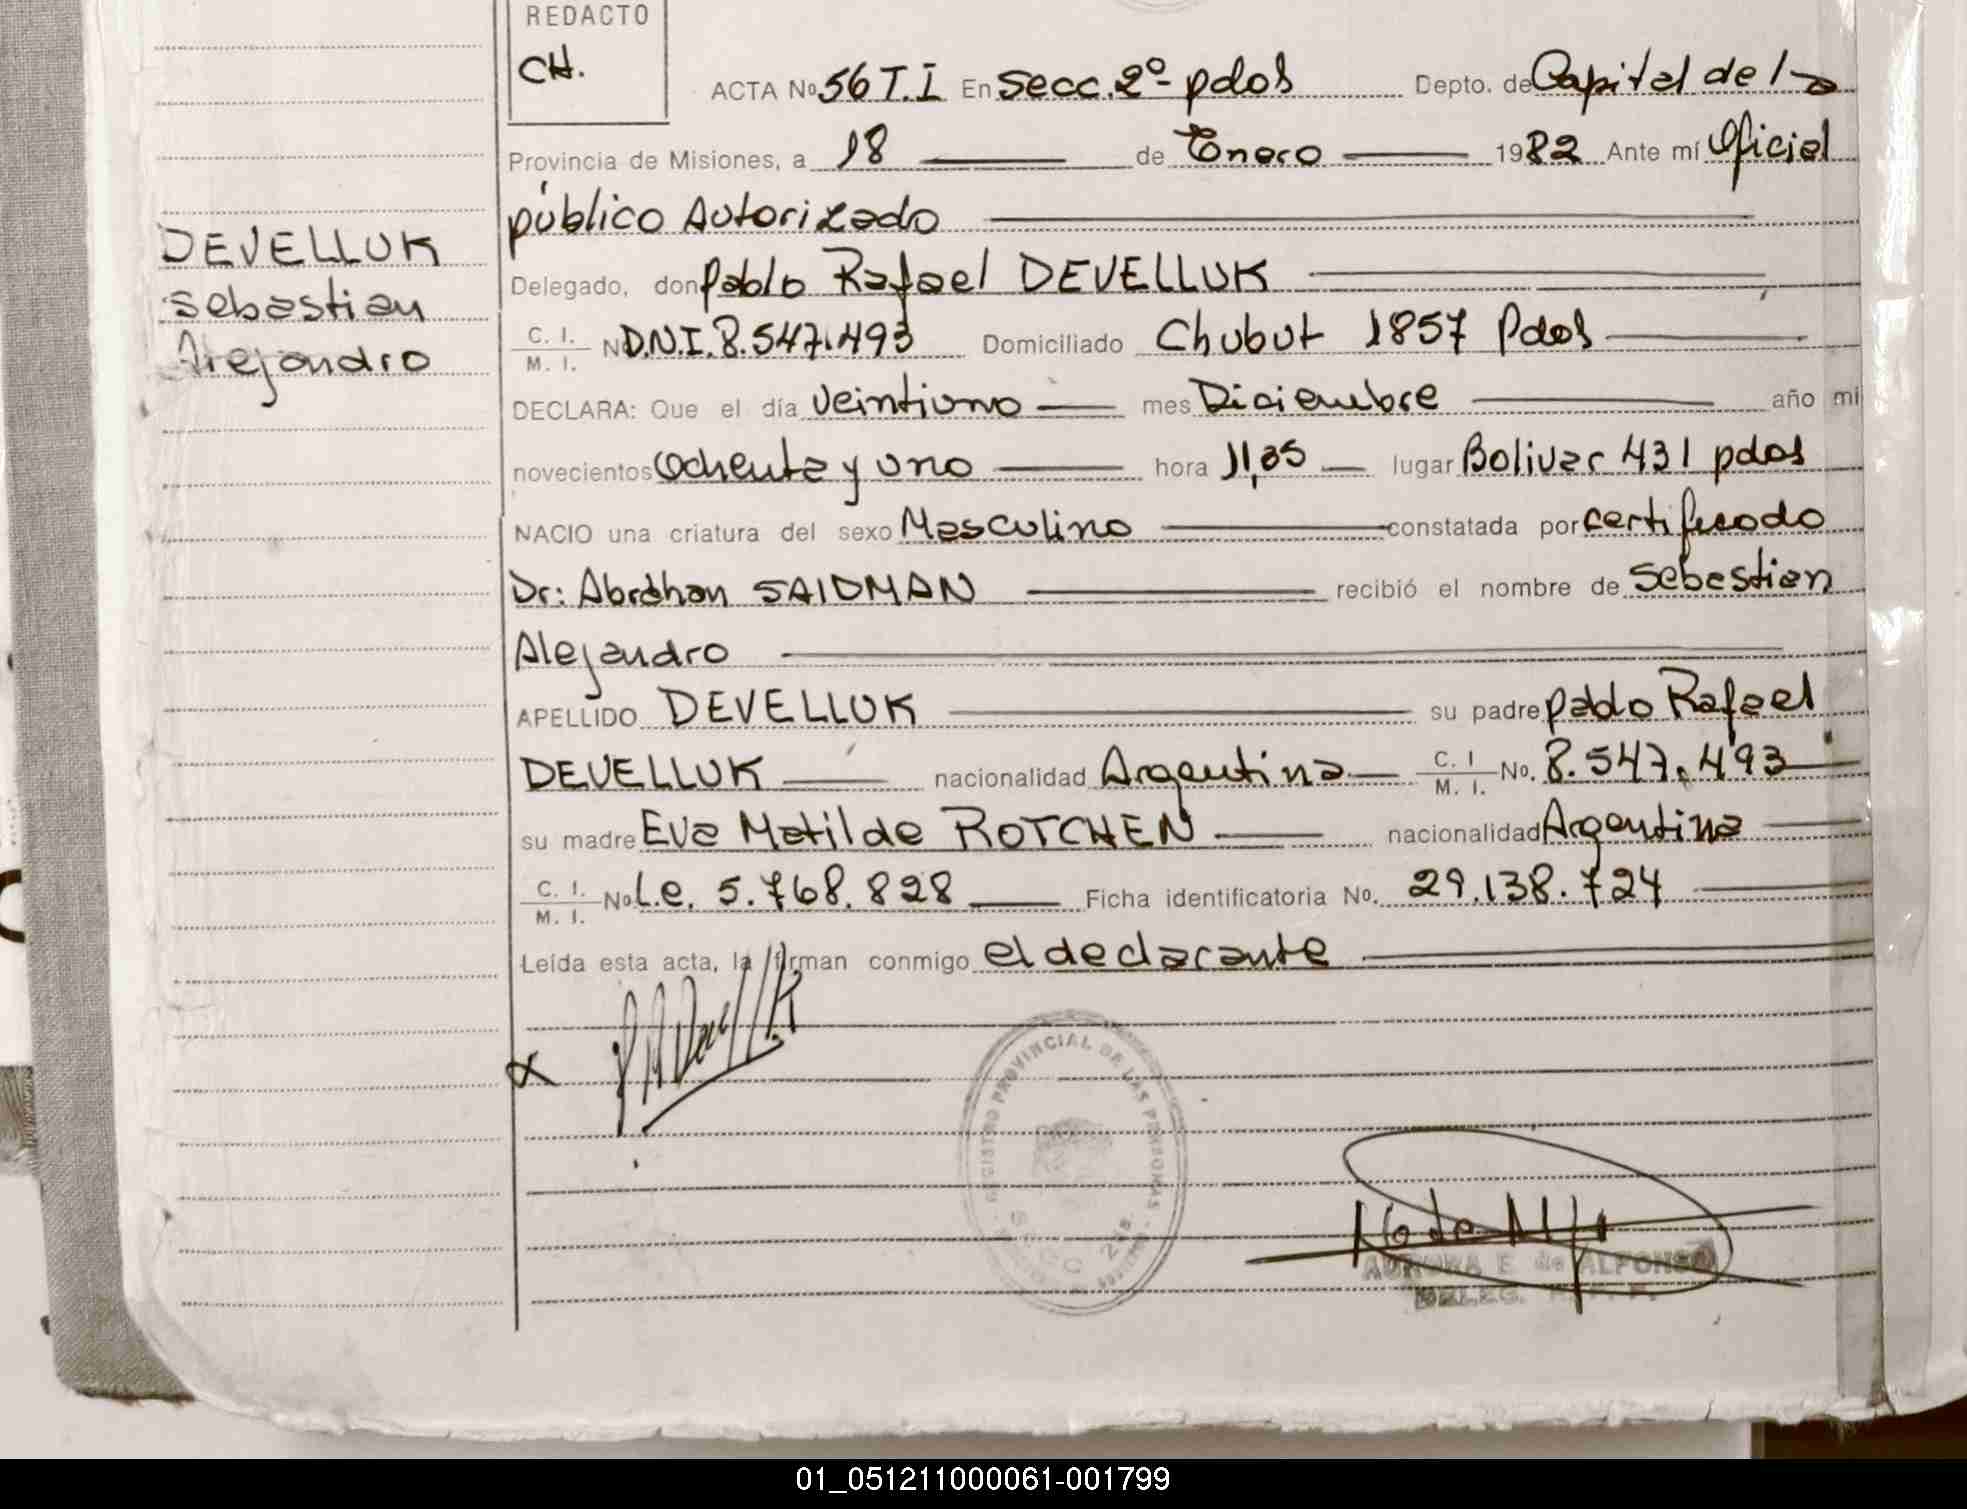 REDACTO
CH.
ACTA Nº 56 T.I En Secc. 2º- pdas Depto. de Capital de la
Provincia de Misiones, a 18 de Enero 1982 Ante mí Oficial
público Autorizado
DEVELLUK
Sebastian
Alejandro
Delegado, don Pablo Rafael DEVELLUK
C. I. / M. I. Nº D.N.I. 8.547.493 Domiciliado Chubut 1857 Pdas
DECLARA: Que el día veintiuno mes Diciembre año mil
novecientos ochenta y uno hora 11,35 lugar Bolivar 431 pdas
NACIO una criatura del sexo Masculino constatada por certificado
Dr: Abrahan SAIDMAN recibió el nombre de Sebastian
Alejandro
APELLIDO DEVELLUK su padre Pablo Rafael
DEVELLUK nacionalidad Argentina C. I / M. I. No. 8.547.493
su madre Eva Matilde ROTCHEN nacionalidad Argentina
C. I. / M. I. No. L.e. 5.768.828 Ficha identificatoria No. 29.138.724
Leída esta acta, la firman conmigo el declarante
REGISTRO PROVINCIAL DE LAS PERSONAS
AURORA E. de ALFONSO
DELEG.
01_051211000061-001799